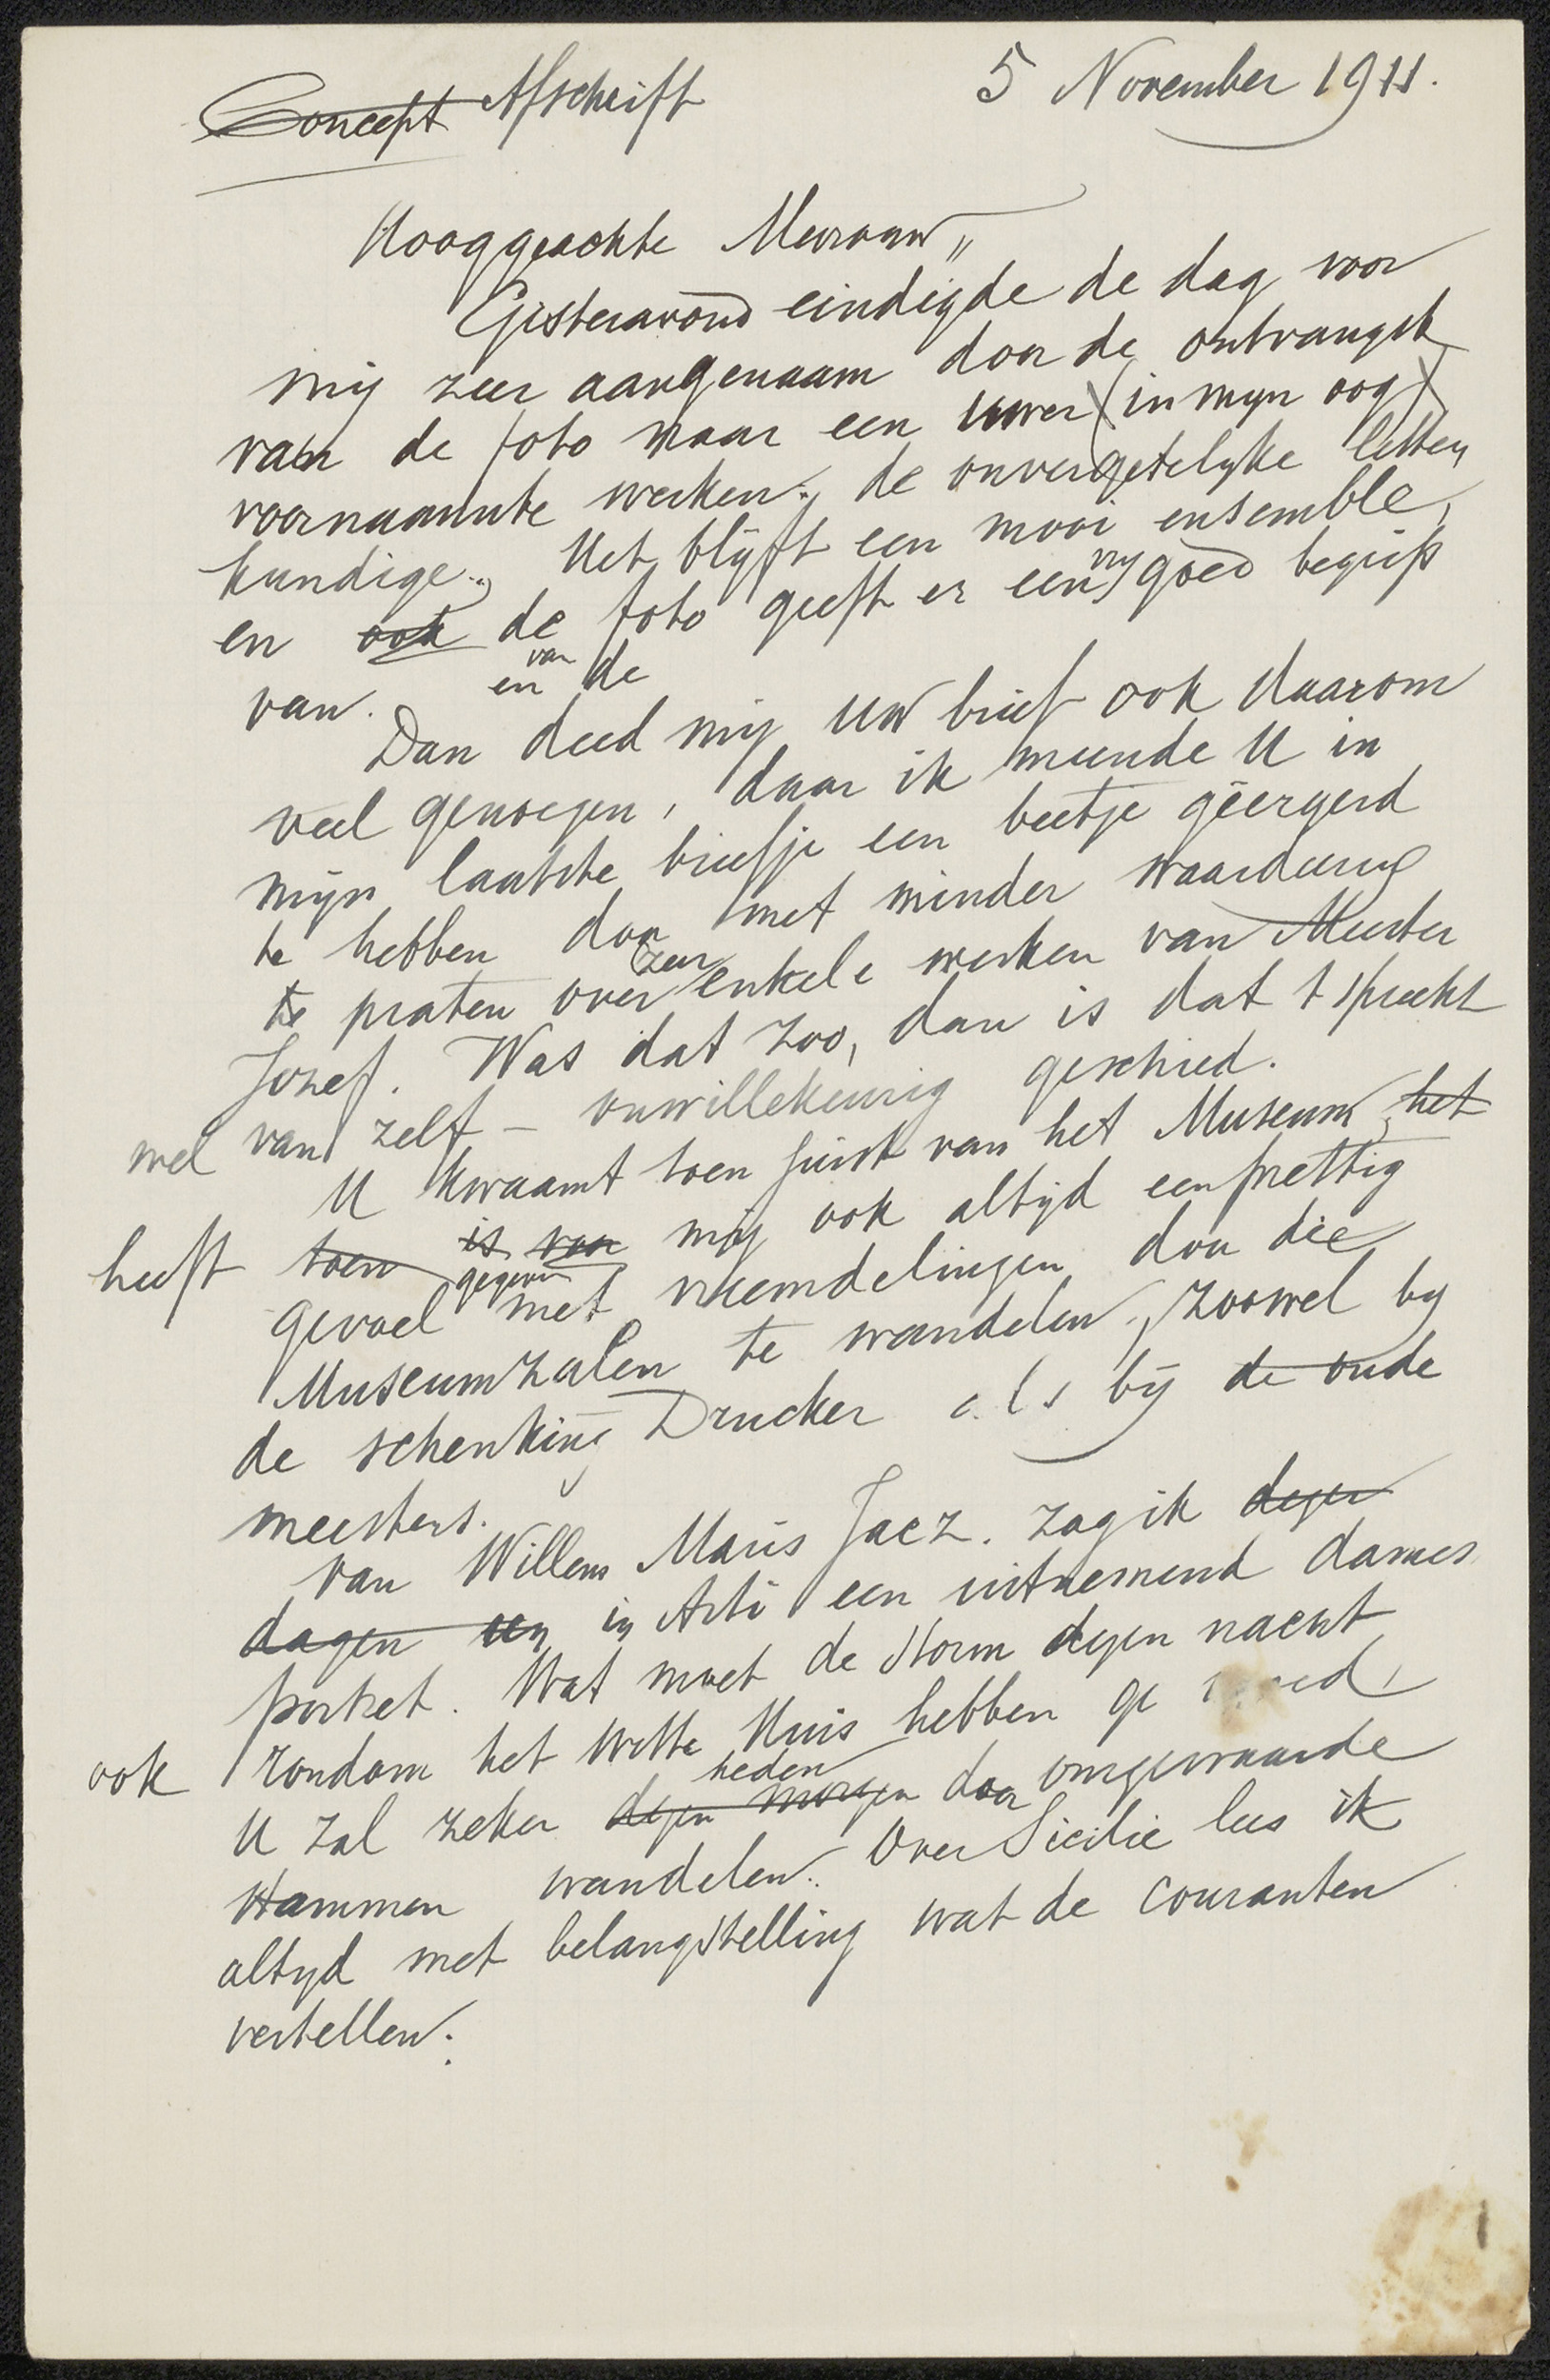 Concept Afschrift 5 November 1911.
Hooggeachte Mevrouw,,
Gisteravond eindigde de dag voor
mij zeer aangenaam door de ontvangst
van de foto naar een uwer (in mijn oog)
voornaamste werken., de onvergetelyke letter,
kundige., Het blijft een mooi ensemble,
en ook de foto geeft er een vry goed begrip
van. en van de
Dan deed mij uw brief ook daarom
veel genoegen, daar ik meende U in
mijn laatste briefje een beetje geërgerd
te hebben door met minder waardeering
te praten over zeer enkele werken van Meester
Jozef. Was dat zoo, dan is dat t spreekt
wel van zelf - onwillekeurig geschied.
U kwaamt toen juist van het Museum, het
heeft toen is van mij ook altyd een prettig
gevoel gegeven met vreemdelingen door die
Museumzalen te wandelen, zoowel by
de schenking Drucker als bij de oude
meesters.
van Willem Maris Jacz. zag ik dezer
dagen in Arti een uitnemend dames
portret. Wat moet de storm dezen nacht
ook rondom het Witte Huis hebben
U zal zeker dezen morgen heden door omgewaaide
stammen wandelen. Over Sicilie lees ik
altyd met belangstelling wat de couranten
vertellen.